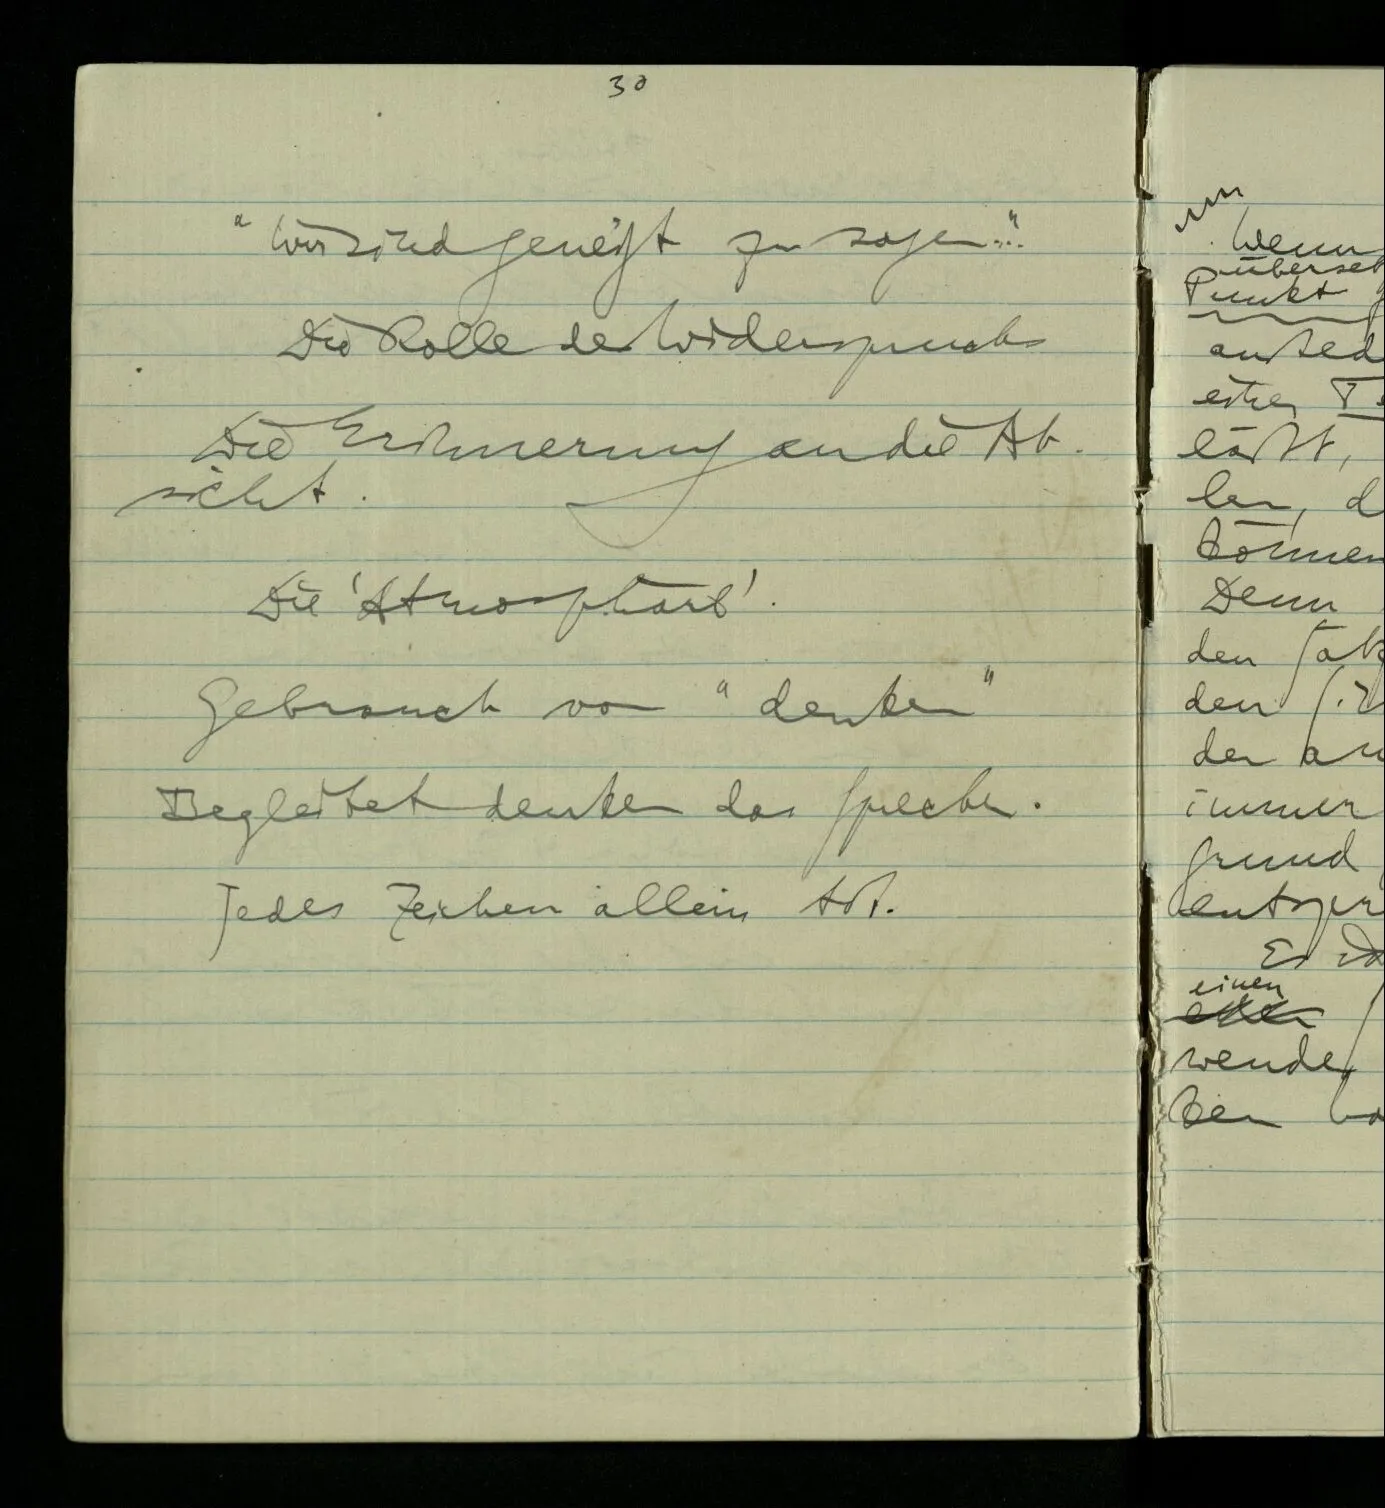 30
"Wir sind geneigt zu sagen..."
Die Rolle des Widerspruchs
Die Erinnerung an die Ab-
sicht.
Die 'Atmosphäre'.
Gebrauch von "denken"
Begleitet denken das Sprechen.
Jedes Zeichen allein tot.
Wenn
überset
Punkt
eines
läßt,
len, d
können
Denn
den
den
der
immer
grund
entspr
Es
einen
wenden
ken